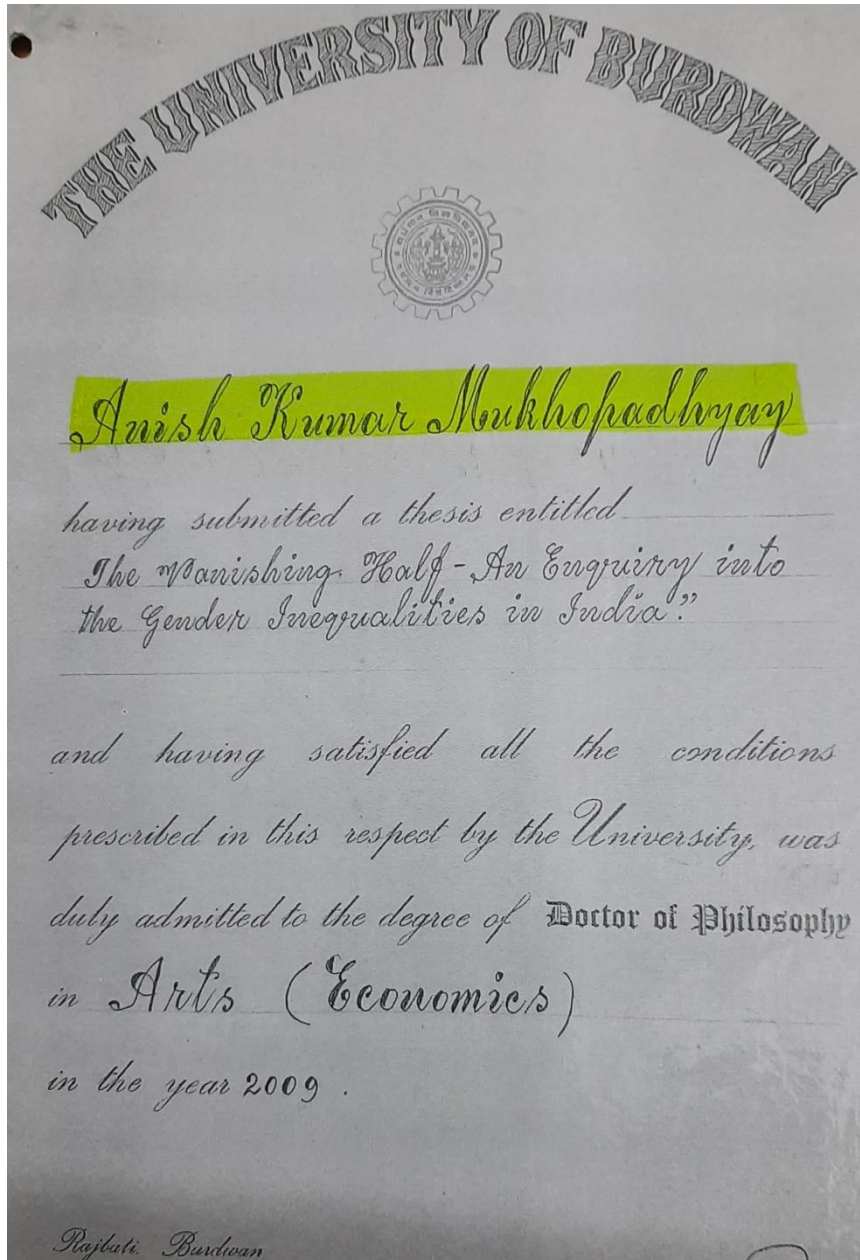 THE UNIVERSITY OF BURDWAN
Anish Kumar Mukhopadhyay
having submitted a thesis entitled
The Vanishing Half - An Enquiry into
the Gender Inequalities in India."
and having satisfied all the conditions
prescribed in this respect by the University, was
duly admitted to the degree of Doctor of Philosophy
in Arts (Economics)
in the year 2009 .
Rajbati. Burdwan